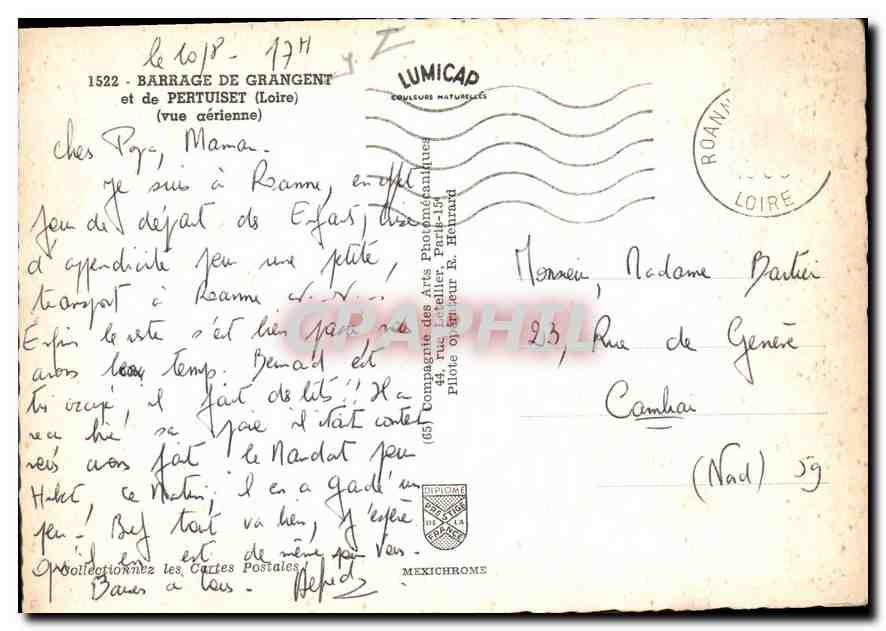 le 10/8 - 17H
1522 - BARRAGE DE GRANGENT
et de PERTUISET (Loire)
(vue aérienne)
LUMICAP
COULEURS NATURELLES
ROANN
LOIRE
Chers Papa, Maman -
Je suis à Roanne, en effet
jour de départ de Enfants, crise
d'appendicite pour une petite,
transport à Roanne
Enfin le reste s'est bien passé, nous
avons beau temps. Bernard est
très occupé, il fait des lits !! Il a
reçu hier sa paie il était content
nous avons fait le Mandat pour
ce Matin, il en a gardé un
peu ! Bref tout va bien, j'espère
qu'il en est de même pour Vous -
Collectionnez les Cartes Postales !
Baisers à tous -
(65) Compagnie des Arts Photomécaniques
44, rue Letellier, Paris-15e
Pilote opérateur R. Henrard
CPAPHIL
Monsieur, Madame
23, Rue de Genève
Cambrai
(Nord) 59
DIPLOME
PRESTIGE
DE LA
FRANCE
MEXICHROME